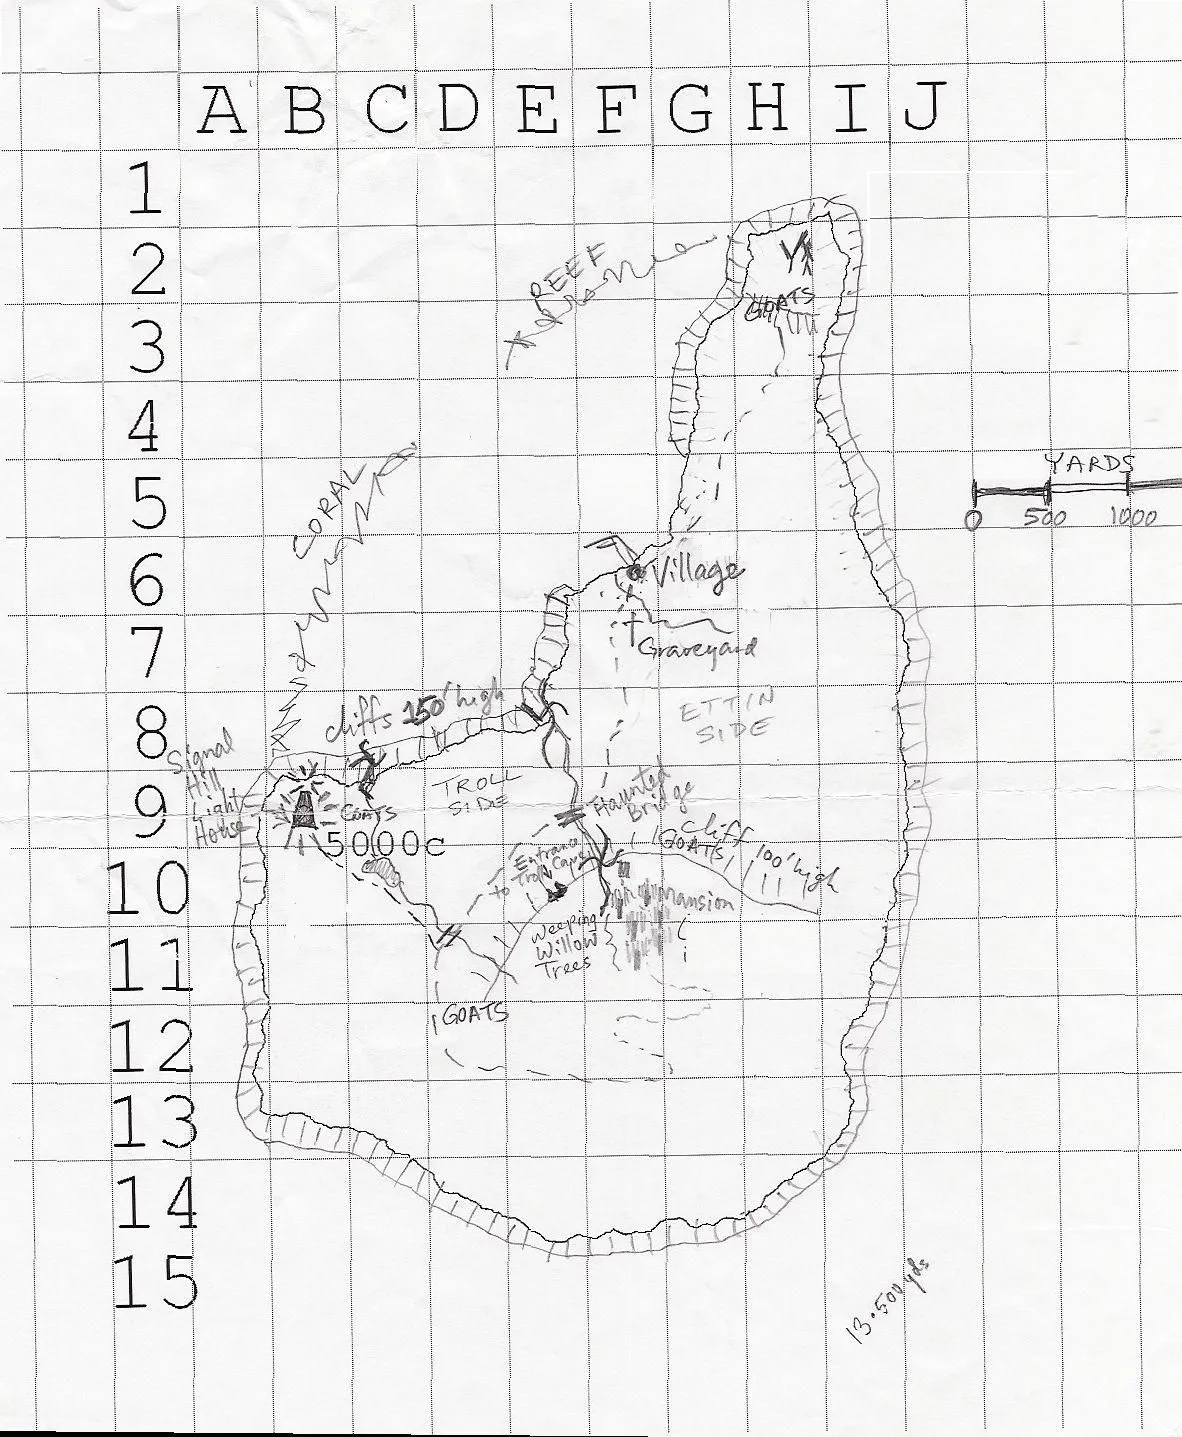 A B C D E F G H I J
1
2
3
4
5
6
7
8
9
10
11
12
13
14
15
REEF
GOATS
CORAL
YARDS
0 500 1000
Village
Graveyard
cliffs 150' high
ETTIN
SIDE
Signal
Hill
Light
House
TROLL
SIDE
GOATS
5000c
Haunted
Bridge
Cliff 100' high
GOATS
Entrance
to Troll Caves
mansion
Weeping
Willow
Trees
GOATS
13.500 yds